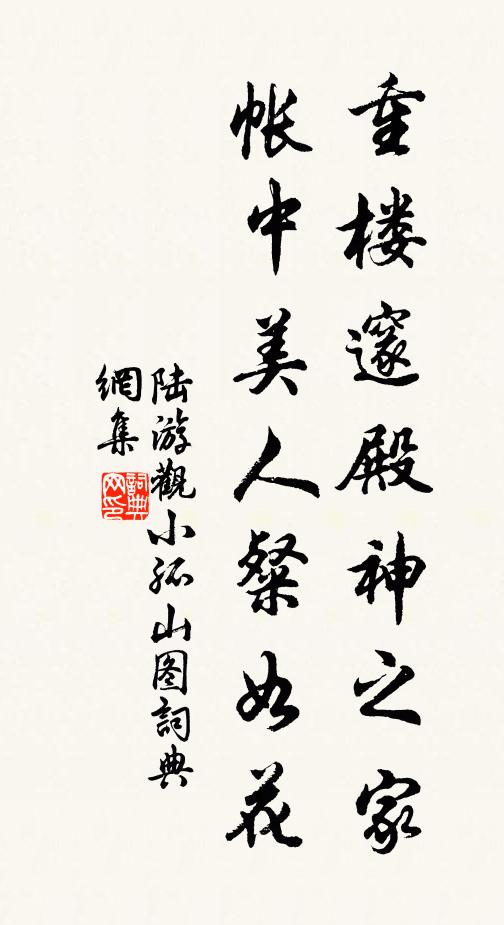 重楼邃殿神之家
帐中美人粲如花
陆游觀小孤山图詞典
網集
詞典
网印